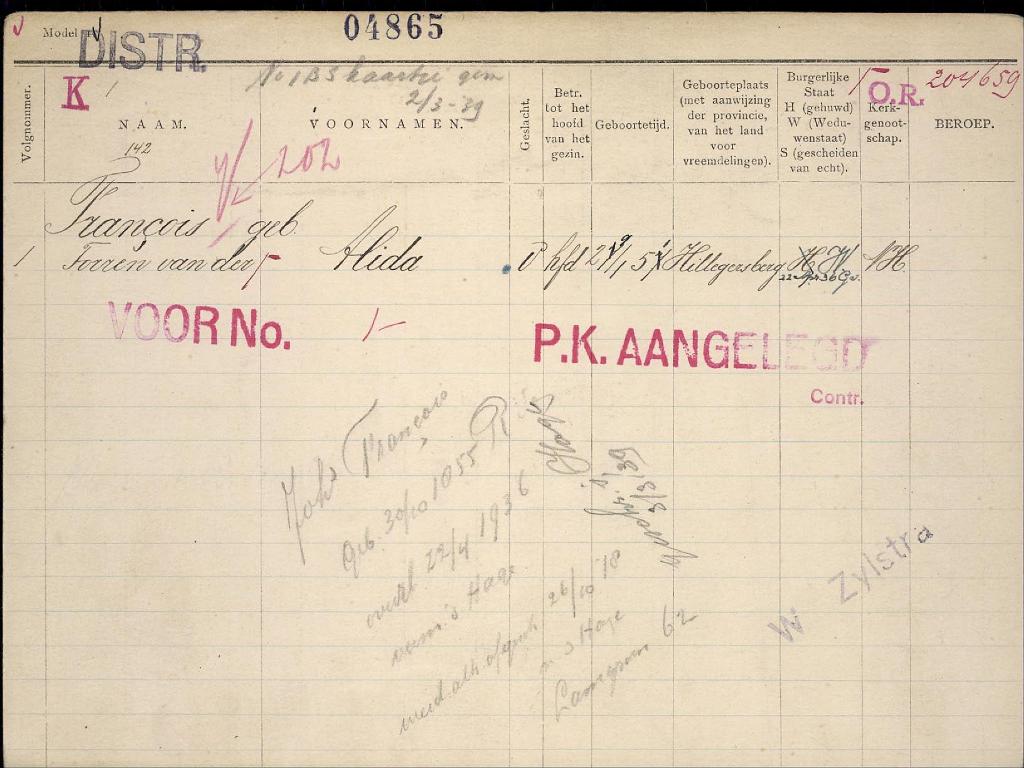 Model
04865
DISTR.
K
kaartje gem
2/3-39
204659
O.R.
Volgnommer.
NAAM.
VOORNAMEN.
Geslacht.
Betr.
tot het
hoofd
van het
gezin.
Geboortetijd.
Geboorteplaats
(met aanwijzing
der provincie,
van het land
voor
vreemdelingen).
Burgerlijke
Staat
H (gehuwd)
W (Wedu-
wenstaat)
S (gescheiden
van echt).
Kerk-
genoot-
schap.
BEROEP.
142
202
François geb.
1 Torren van der Alida hfd Hillegersberg H W NH
VOOR No. 1
P.K. AANGELEGD
Contr.
Joh François
geb. 30/10 1855 R
overl. 22/4 1936
's Hage
26/10 '18
's Hage
62
3/3/39
W Zylstra